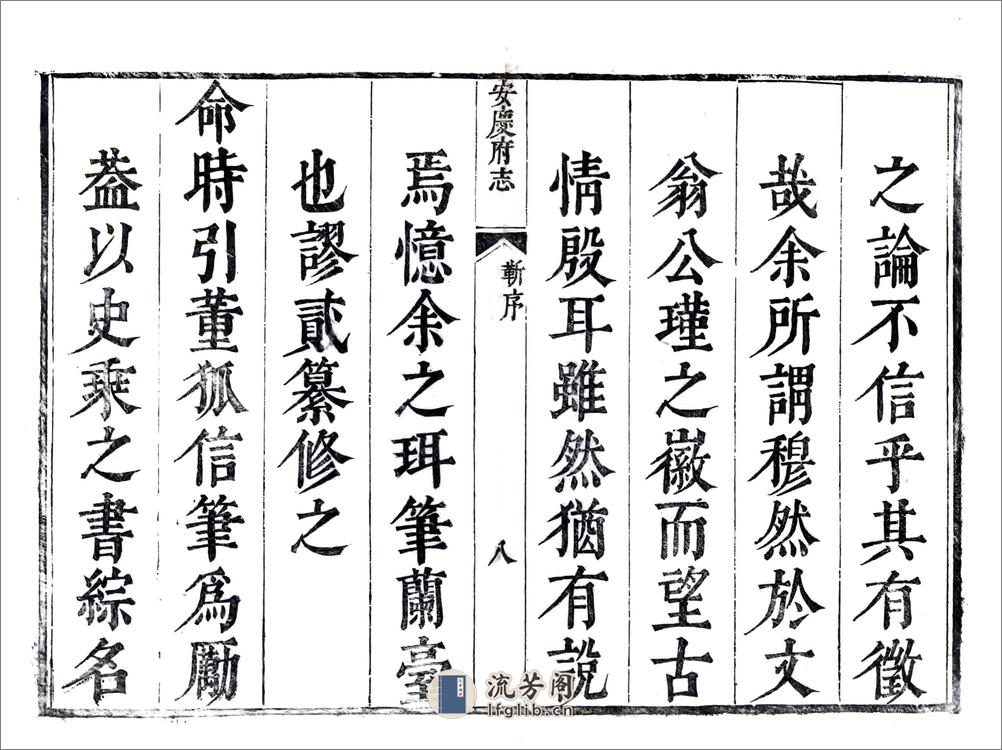 之論不信乎其有徵
哉余所謂穆然於文
翁公瑾之徽而望古
情殷耳雖然猶有說
安慶府志
靳序
八
焉憶余之珥筆蘭臺
也謬貳纂修之
命時引董狐信筆爲勵
葢以史乘之書綜名
流芳阁
lfglib.cn